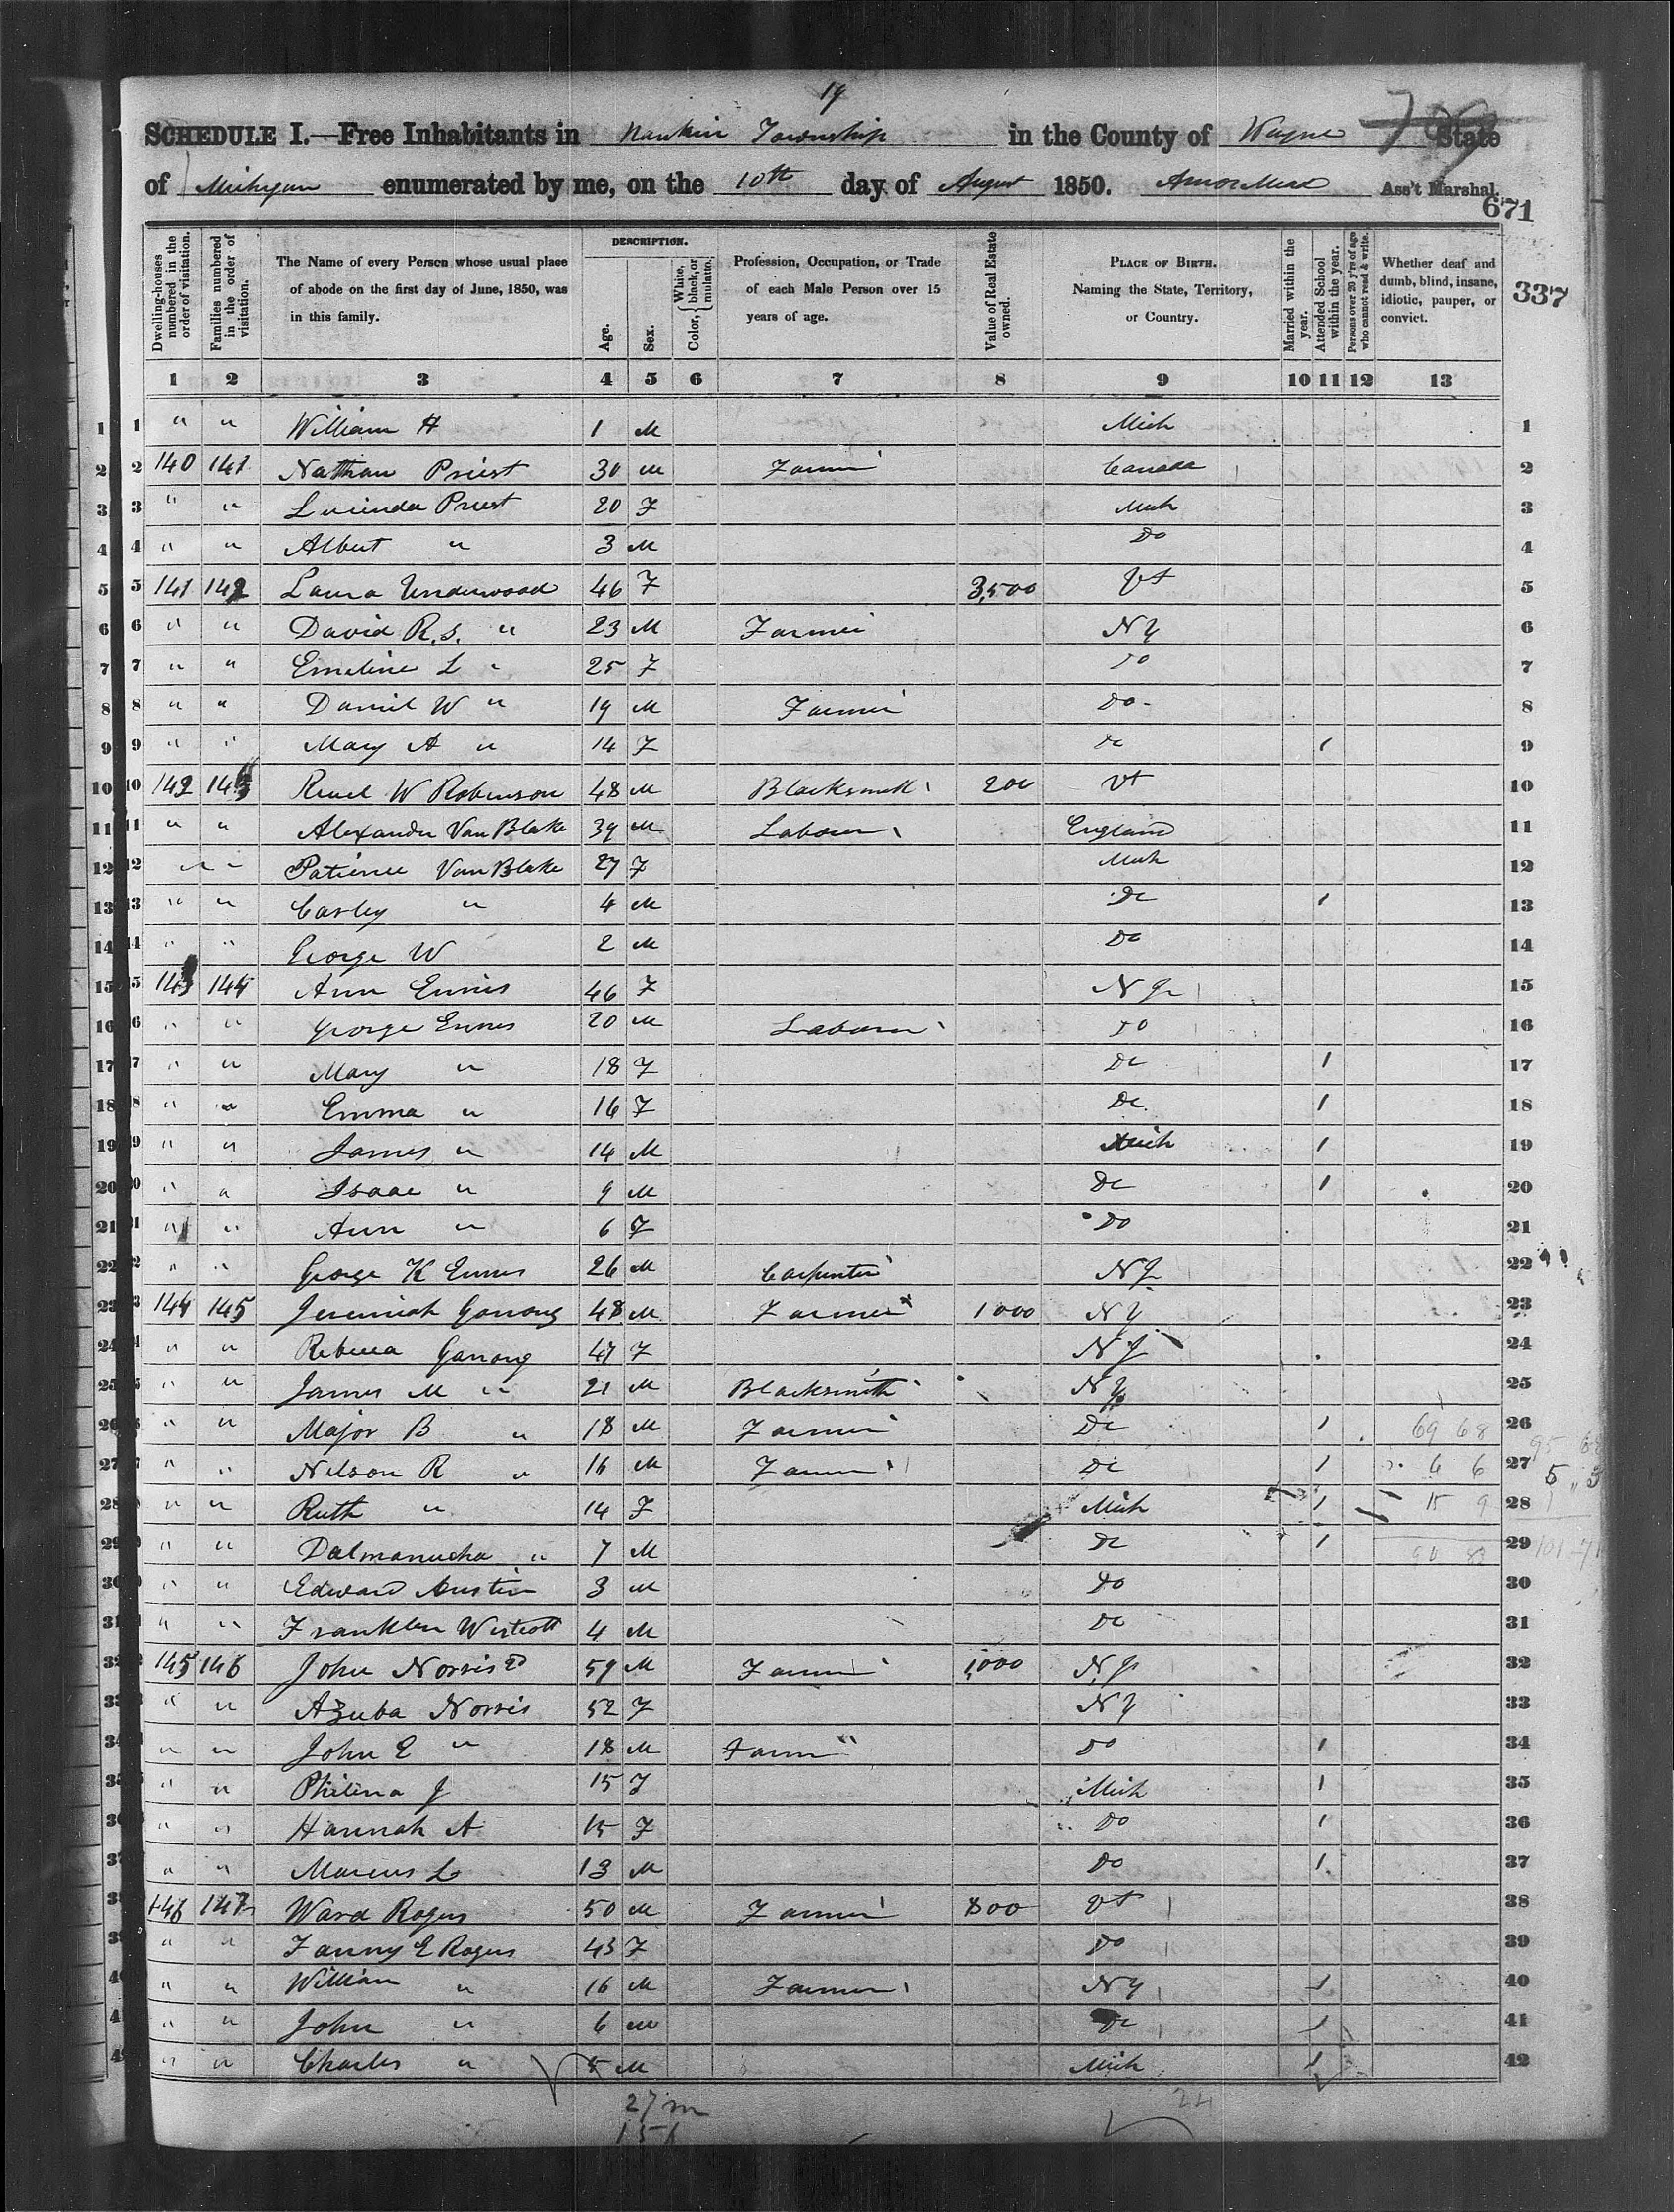 19
SCHEDULE I.—Free Inhabitants in Nankin Township in the County of Wayne State
of Michigan enumerated by me, on the 10th day of August 1850. Amos Mead Ass't Marshal.
671
337
Dwelling-houses numbered in the order of visitation.
Families numbered in the order of visitation.
The Name of every Person whose usual place of abode on the first day of June, 1850, was in this family.
DESCRIPTION.
Age.
Sex.
Color, { White, black, or mulatto.
Profession, Occupation, or Trade of each Male Person over 15 years of age.
Value of Real Estate owned.
PLACE OF BIRTH. Naming the State, Territory, or Country.
Married within the year.
Attended School within the year.
Persons over 20 y'rs of age who cannot read & write.
Whether deaf and dumb, blind, insane, idiotic, pauper, or convict.
1 2 3 4 5 6 7 8 9 10 11 12 13
1 " " William H 1 M Mich 1
2 140 141 Nathan Priest 30 M Farmer Canada 2
3 " " Lucinda Priest 20 F Mich 3
4 " " Albert " 3 M Do 4
5 141 142 Laura Underwood 46 F 3,500 Vt 5
6 " " David R. S. " 23 M Farmer N Y 6
7 " " Emeline L " 25 F Do 7
8 " " Daniel W " 19 M Farmer Do 8
9 " " Mary A " 14 F Do 1 9
10 142 143 Reuel W Robinson 48 M Blacksmith 200 Vt 10
11 " " Alexander Van Blake 39 M Labourer England 11
12 " " Patience Van Blake 27 F Mich 12
13 " " Carley " 4 M Do 1 13
14 " " George W 2 M Do 14
15 143 144 Ann Ennis 46 F N J 15
16 " " George Ennis 20 M Labourer Do 16
17 " " Mary " 18 F Do 1 17
18 " " Emma " 16 F Do 1 18
19 " " James " 14 M Mich 1 19
20 " " Isaac " 9 M Do 1 20
21 " " Ann " 6 F Do 21
22 " " George K Ennis 26 M Carpenter N J 22
23 144 145 Jeremiah Ganong 48 M Farmer 1000 N Y 23
24 " " Rebecca Ganong 47 F N J 24
25 " " James M " 21 M Blacksmith N Y 25
26 " " Major B " 18 M Farmer Do 1 26
27 " " Nelson R " 16 M Farmer Do 1 27
28 " " Ruth " 14 F Mich 1 28
29 " " Dalmanutha " 7 M Do 1 29
30 " " Edward Austin 3 M Do 30
31 " " Franklin Westcott 4 M Do 31
32 145 146 John Norris 2d 59 M Farmer 1,000 N J 32
33 " " Azuba Norris 52 F N Y 33
34 " " John E " 18 M Farmer Do 1 34
35 " " Philena J 15 F Mich 1 35
36 " " Hannah A 15 F Do 1 36
37 " " Marcus L 13 M Do 1 37
38 146 147 Ward Rogers 50 M Farmer 800 Vt 38
39 " " Fanny E Rogers 43 F Do 39
40 " " William " 16 M Farmer N Y 1 40
41 " " John " 6 M Do 1 41
42 " " Charles " 5 M Mich 1 42
27 m
15 f
24